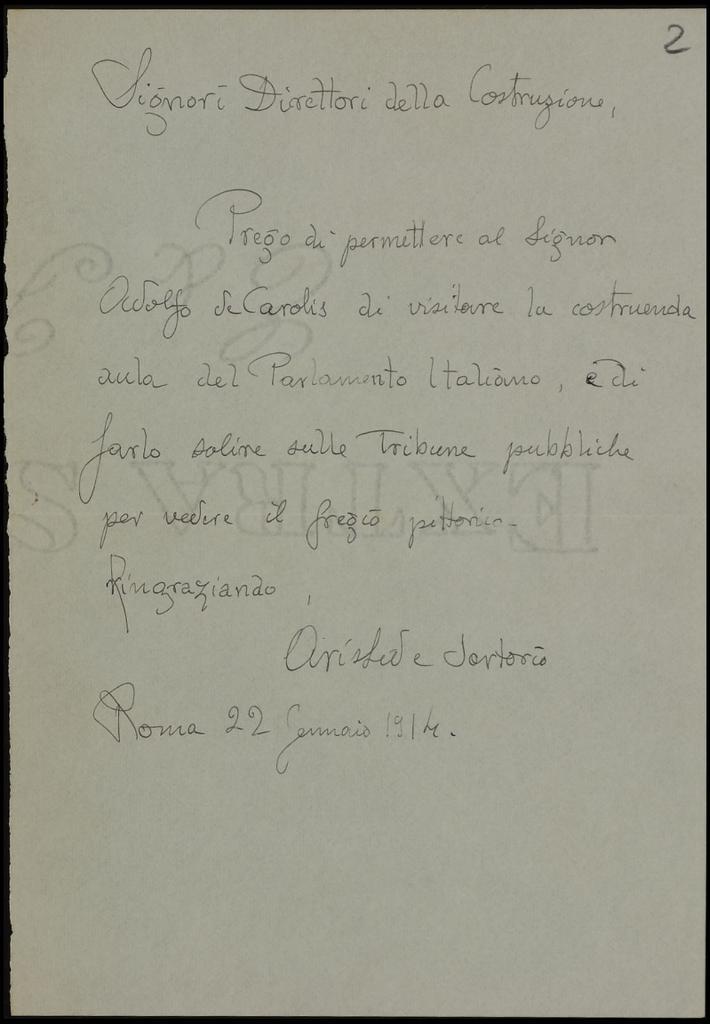 2
Signori Direttori della Costruzione,
Prego di permettere al Signor
Adolfo de Carolis di visitare la costruenda
aula del Parlamento Italiano, e di
farlo salire sulle Tribune pubbliche
per vedere il fregio pittorico.
Ringraziando,
Aristide Sartorio
Roma 22 Gennaio 1914.
EXTRA S